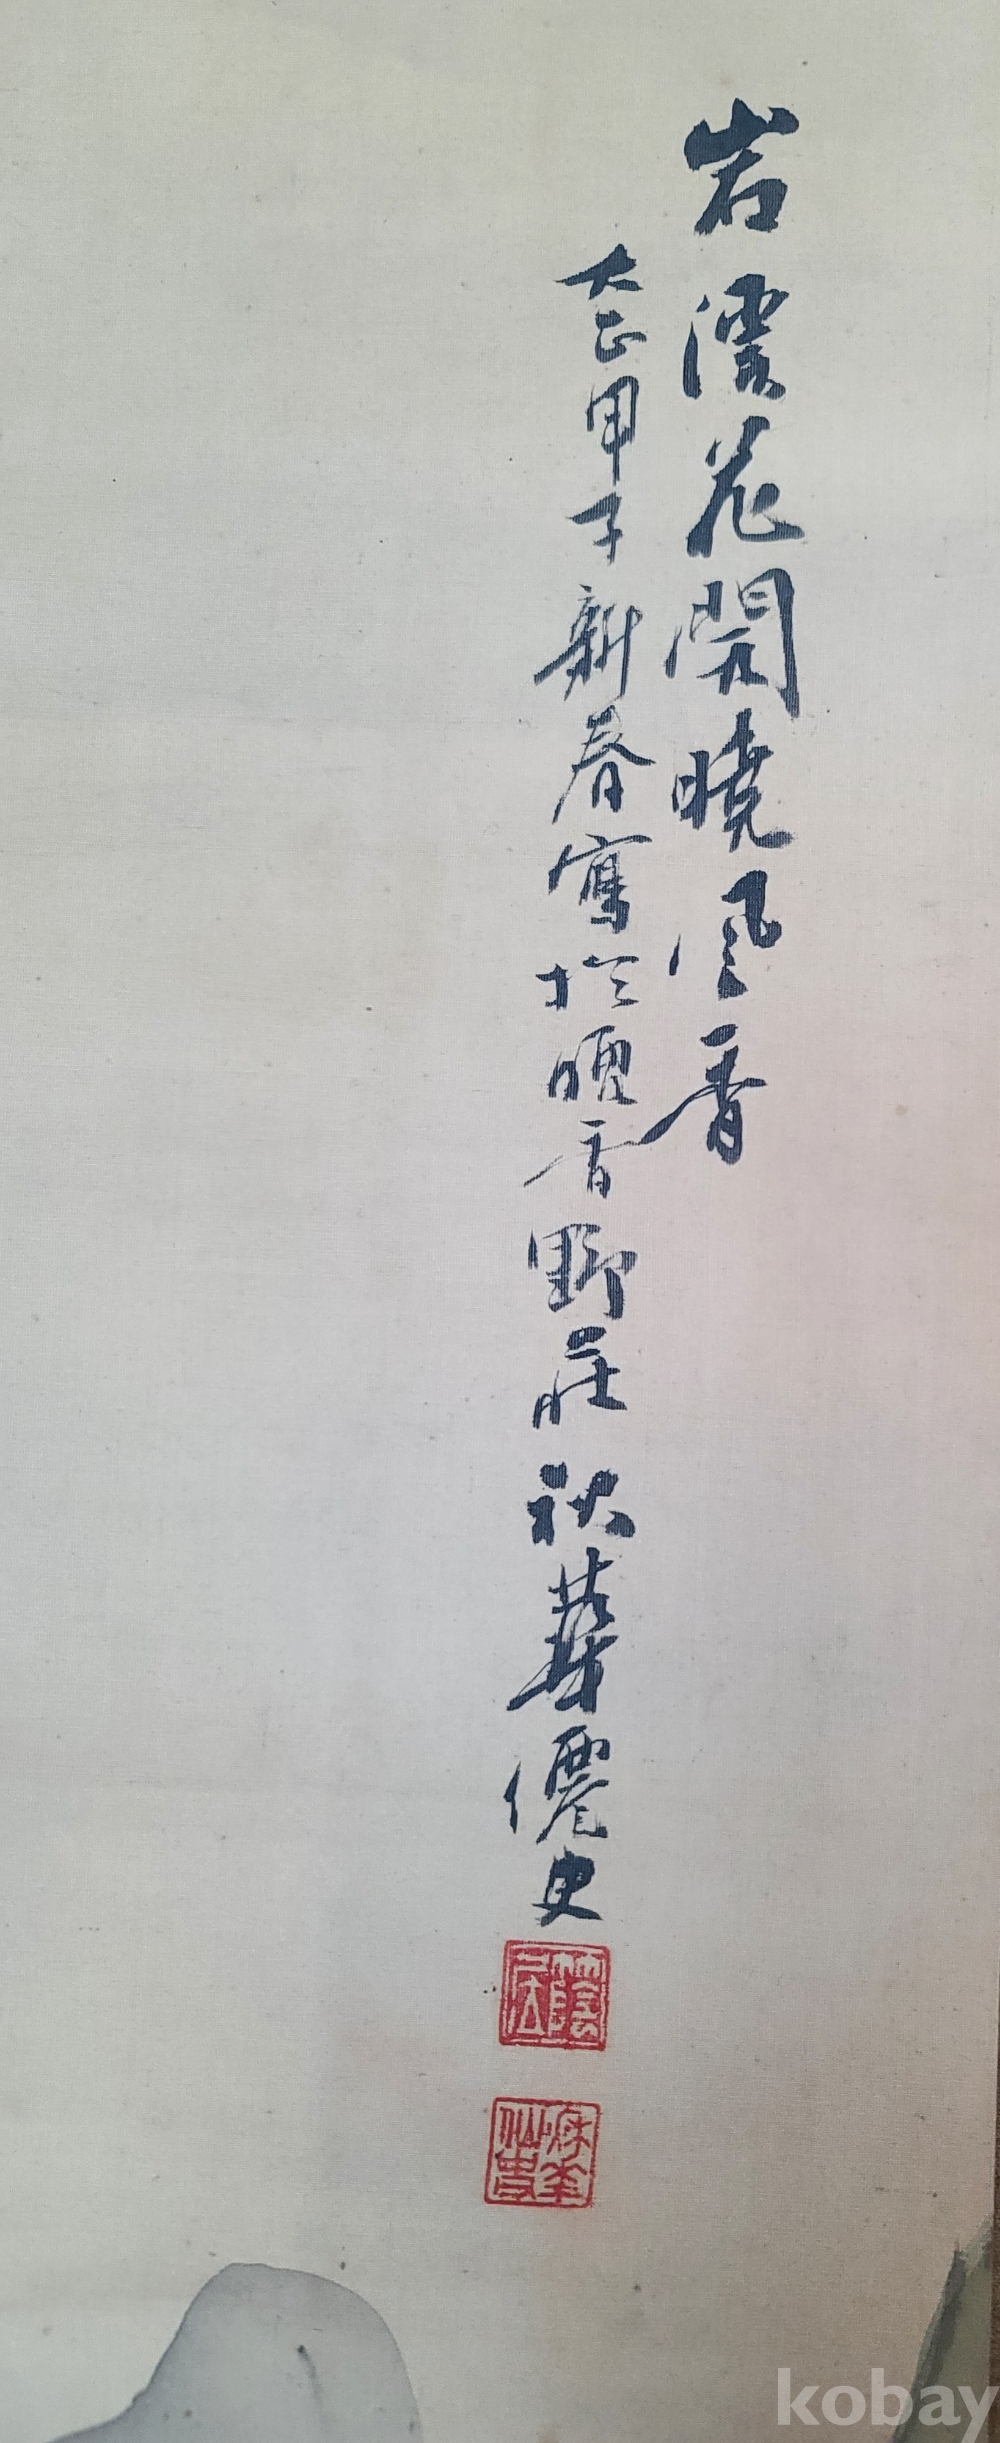 岩溪花開曉風香
大正甲子新春寫於晩香野莊秋華僊史
kobay